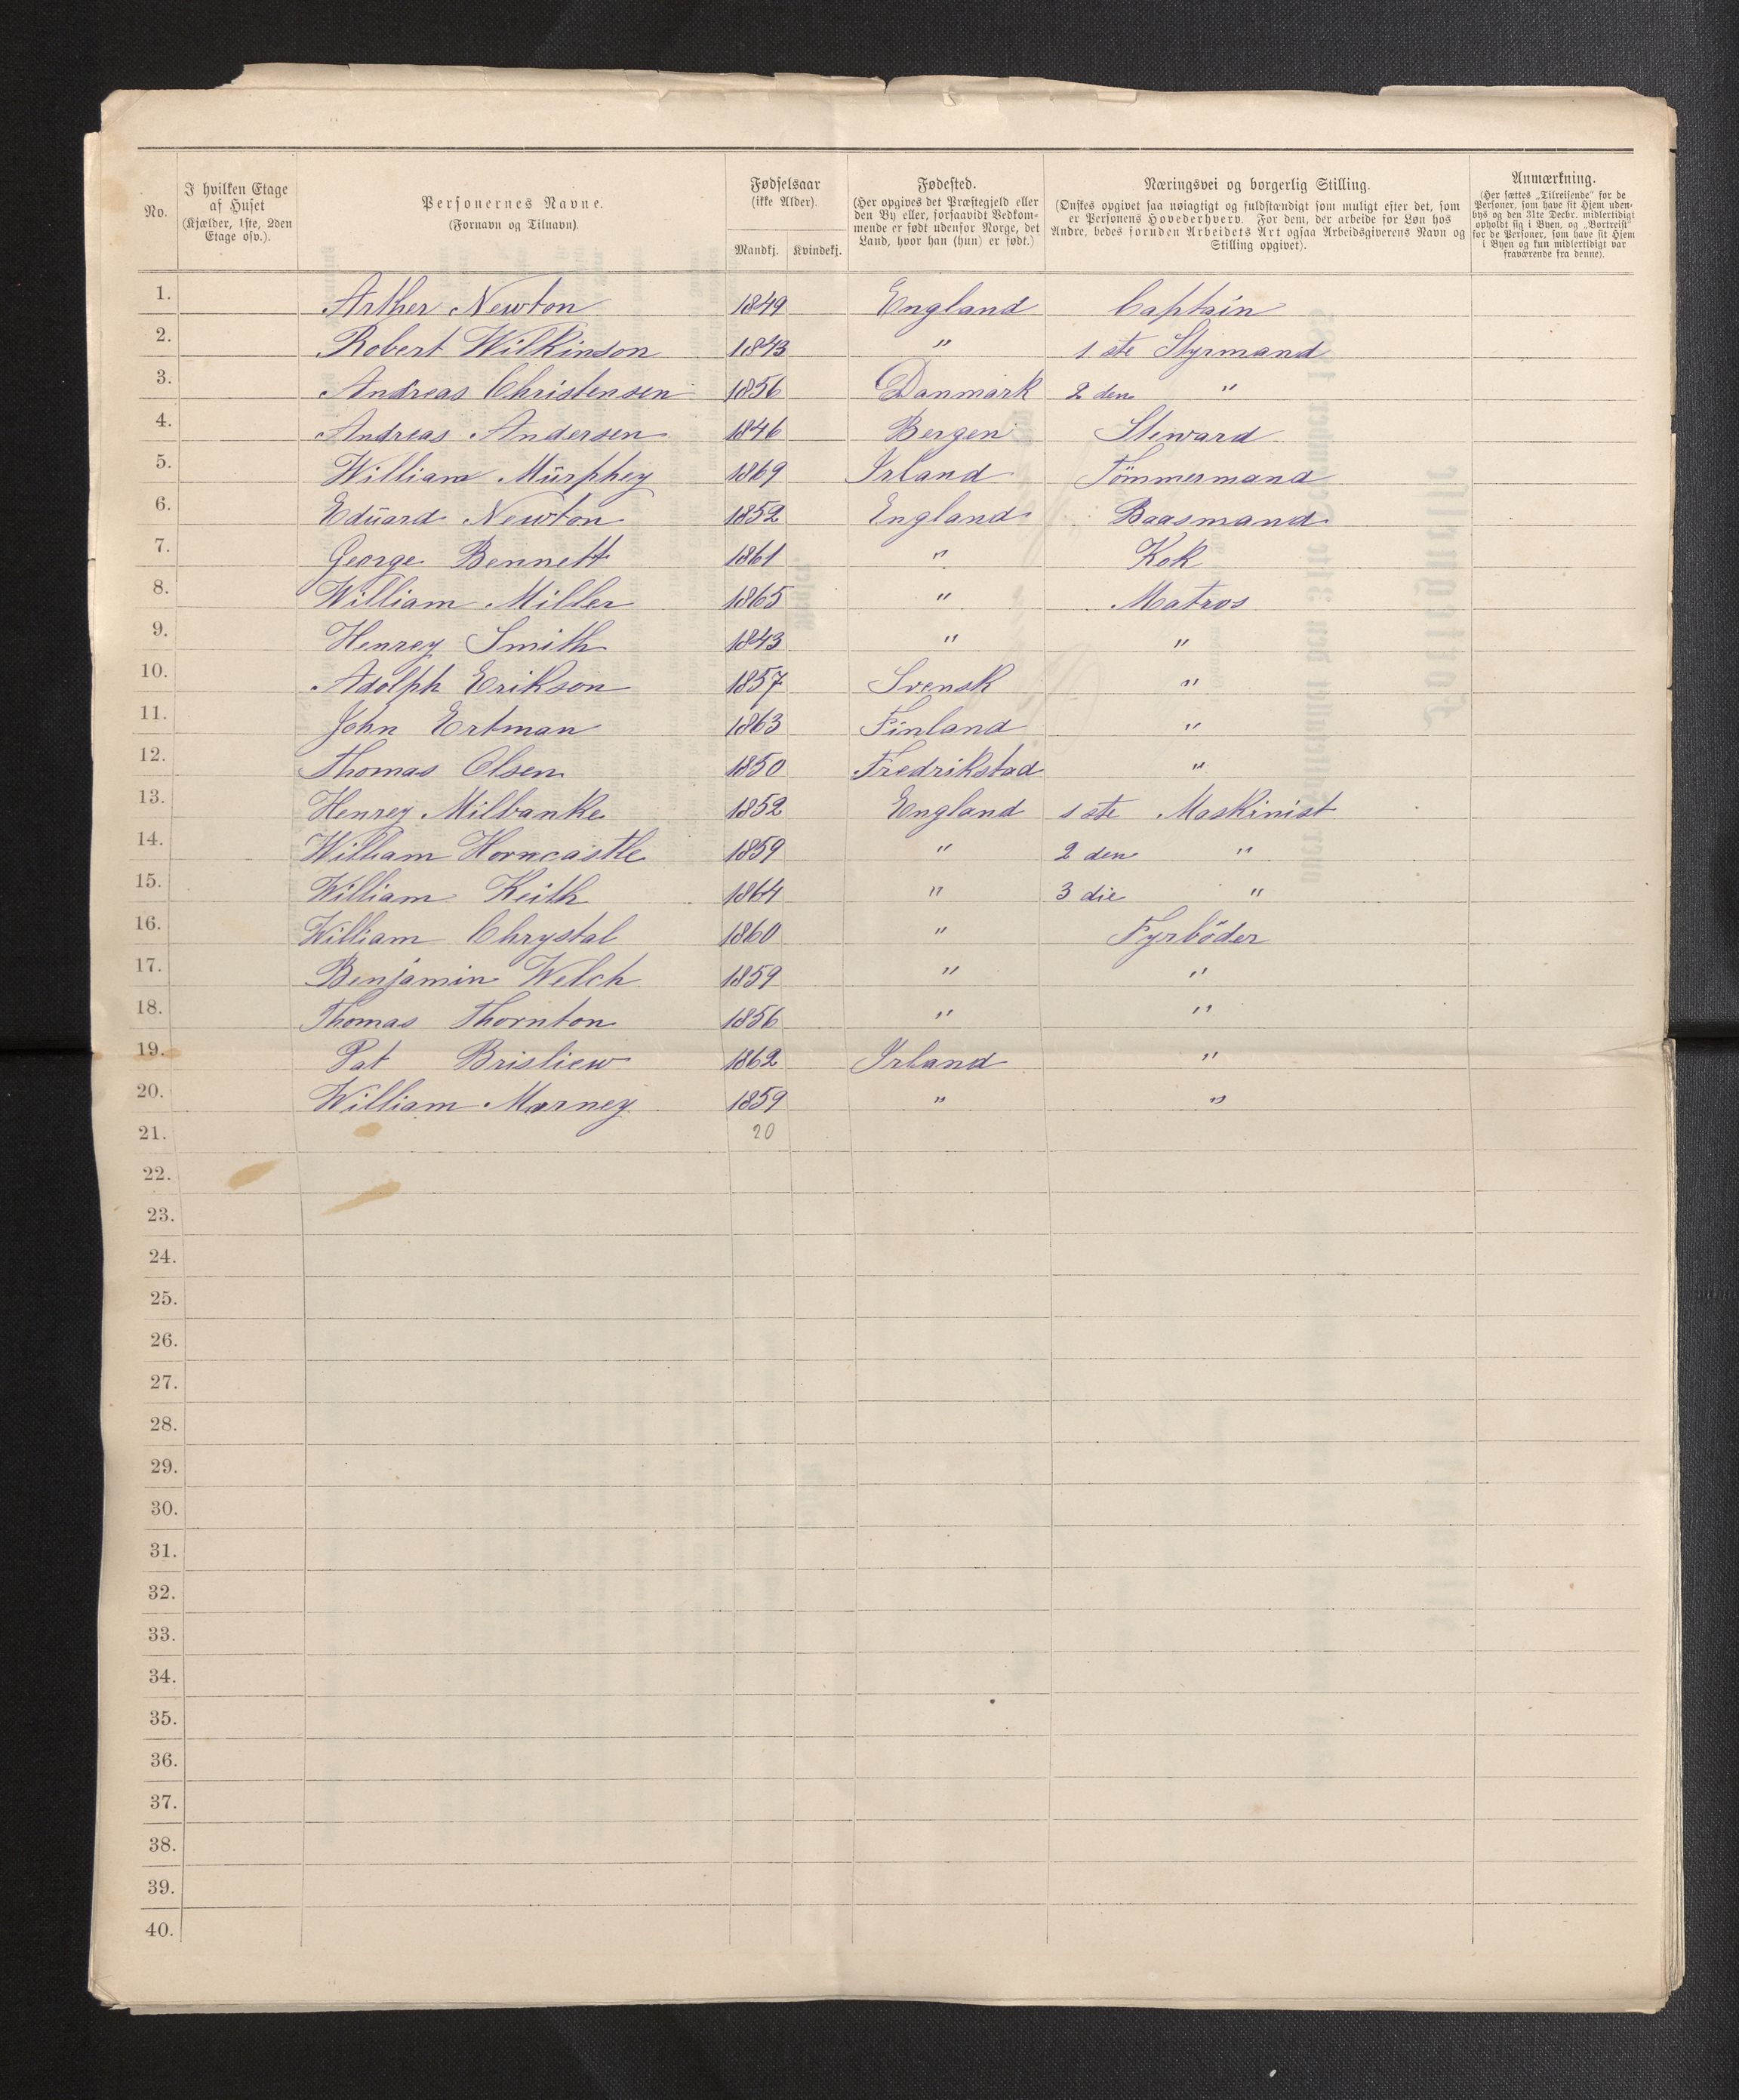 No.
I hvilken Etage
af Huset
(Kjælder, 1ste, 2den
Etage osv.).
Personernes Navne.
(Fornavn og Tilnavn)
Fødselsaar
(ikke Alder).
Mandkj. Kvindekj.
Fødested.
(Her opgives det Præstegjeld eller
den By eller, forsaavidt Vedkom-
mende er født udenfor Norge, det
Land, hvor han (hun) er født.)
Næringsvei og borgerlig Stilling.
(Ønskes opgivet saa nøiagtigt og fuldstændigt som muligt efter det, som
er Personens Hovederhverv. For dem, der arbeide for Løn hos
Andre, bedes foruden Arbeidets Art ogsaa Arbeidsgiverens Navn og
Stilling opgivet).
Anmærkning.
(Her sættes „Tilreisende" for de
Personer, som have sit Hjem uden-
bys og den 31te Decbr. midlertidigt
opholdt sig i Byen, og „Bortreist"
for de Personer, som have sit Hjem
i Byen og kun midlertidigt var
fraværende fra denne).
1. Arther Newton 1849 England Captain
2. Robert Wilkinson 1843 " 1 ste Styrmand
3. Andreas Christensen 1856 Danmark 2 den "
4. Andreas Andersen 1846 Bergen Steward
5. William Mürphey 1869 Irland Tömmermand
6. Edüard Newton 1852 England Baasmand
7. George Bennett 1861 " Kok
8. William Miller 1865 " Matros
9. Henrey Smith 1843 " "
10. Adolph Erikson 1857 Svensk "
11. John Ertman 1863 Finland "
12. Thomas Olsen 1850 Fredrikstad "
13. Henrey Milbanke 1852 England 1 ste Maskinist
14. William Horncastle 1859 " 2 den "
15. William Keith 1864 " 3 die "
16. William Chrystal 1860 " Fyrböder
17. Benjamin Welch 1859 " "
18. Thomas Thornton 1856 " "
19. Pat Brisliew 1862 Irland "
20. William Marney 1859 " "
21. 20
22.
23.
24.
25.
26.
27.
28.
29.
30.
31.
32.
33.
34.
35.
36.
37.
38.
39.
40.